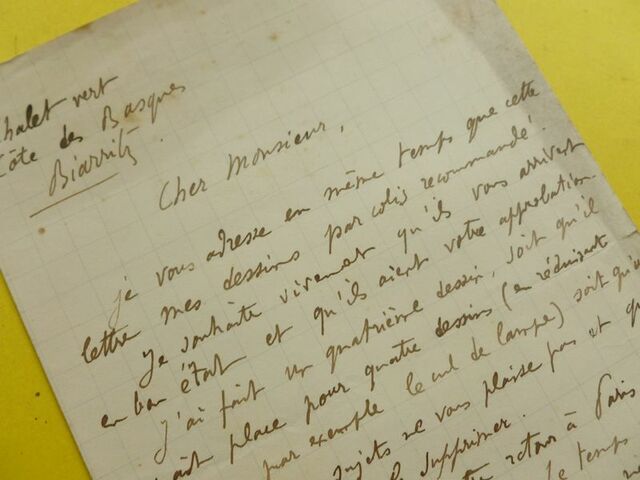 Chalet vert
Côte des Basques
Biarritz
Cher Monsieur,
je vous adresse en même temps que cette
lettre mes dessins par colis recommandé.
Je souhaite vivement qu'ils vous arrivent
en bon état et qu'ils aient votre approbation.
J'ai fait un quatrième dessin, soit qu'il
place pour quatre dessins (en réduisant
par exemple le cul de lampe) soit qu'un
sujets ne vous plaise pas et
supprimer.
retour à Paris
le temps